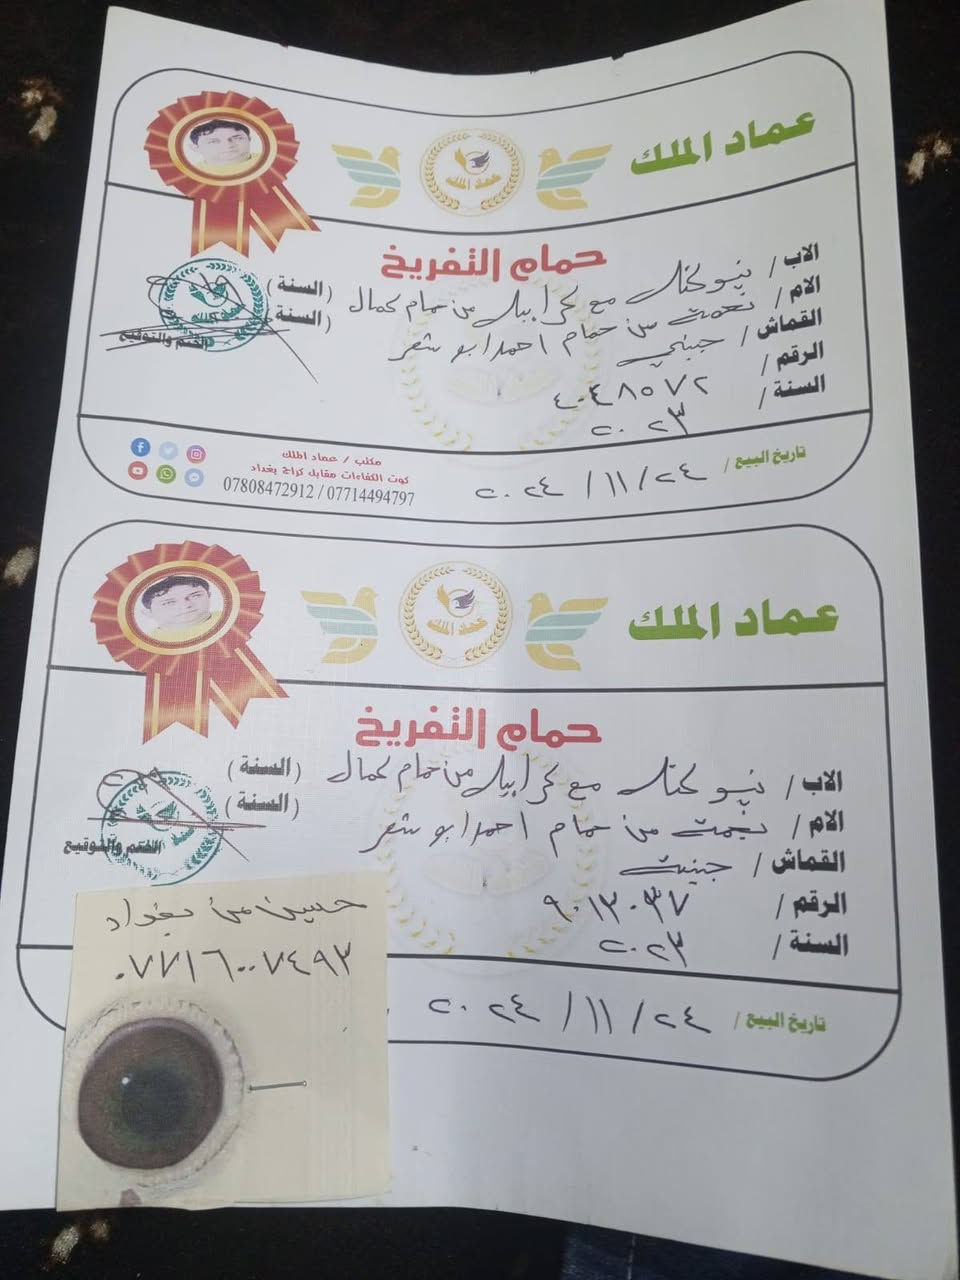 عماد الملك
عماد الملك
حمام التفريخ
الاب / نيو لختل مع كرابيل من حمام كمال (السنة )
الام / نعمت من حمام احمد ابو شعر (السنة )
القماش / جيني
الرقم / ٤٠٤٨٥٧٢
السنة / ٢٠٢٣
الختم والتوقيع
تاريخ البيع / ٢٤ / ١١ / ٢٠٢٤
مكتب / عماد الملك
كوت الكفاءات مقابل كراج بغداد
07808472912 / 07714494797
عماد الملك
عماد الملك
حمام التفريخ
الاب / نيو لختل مع كرابيل من حمام كمال (السنة )
الام / نعمت من حمام احمد ابو شعر (السنة )
القماش /
الرقم / ٩٠١٣٠٣٧
السنة / ٢٠٢٣
الختم والتوقيع
تاريخ البيع / ٢٤ / ١١ / ٢٠٢٤
حسين من بغداد
٠٧٧١٦٠٠٧٤٩٣